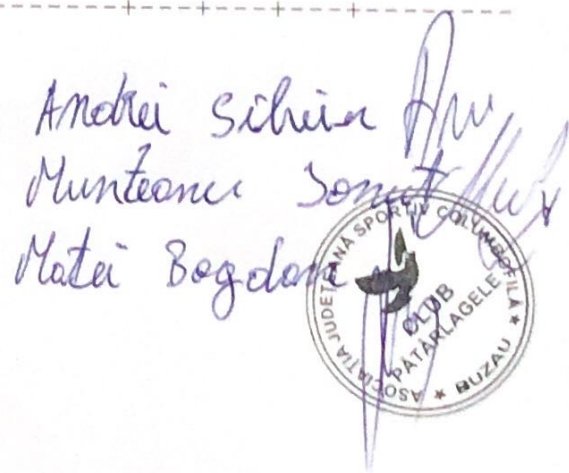 Andrei Silviu
Munteanu Ionuț
Matei Bogdan
ASOCIAȚIA JUDEȚEANĂ SPORTIV COLUMBOFILĂ * BUZAU *
CLUB
PĂTÂRLAGELE